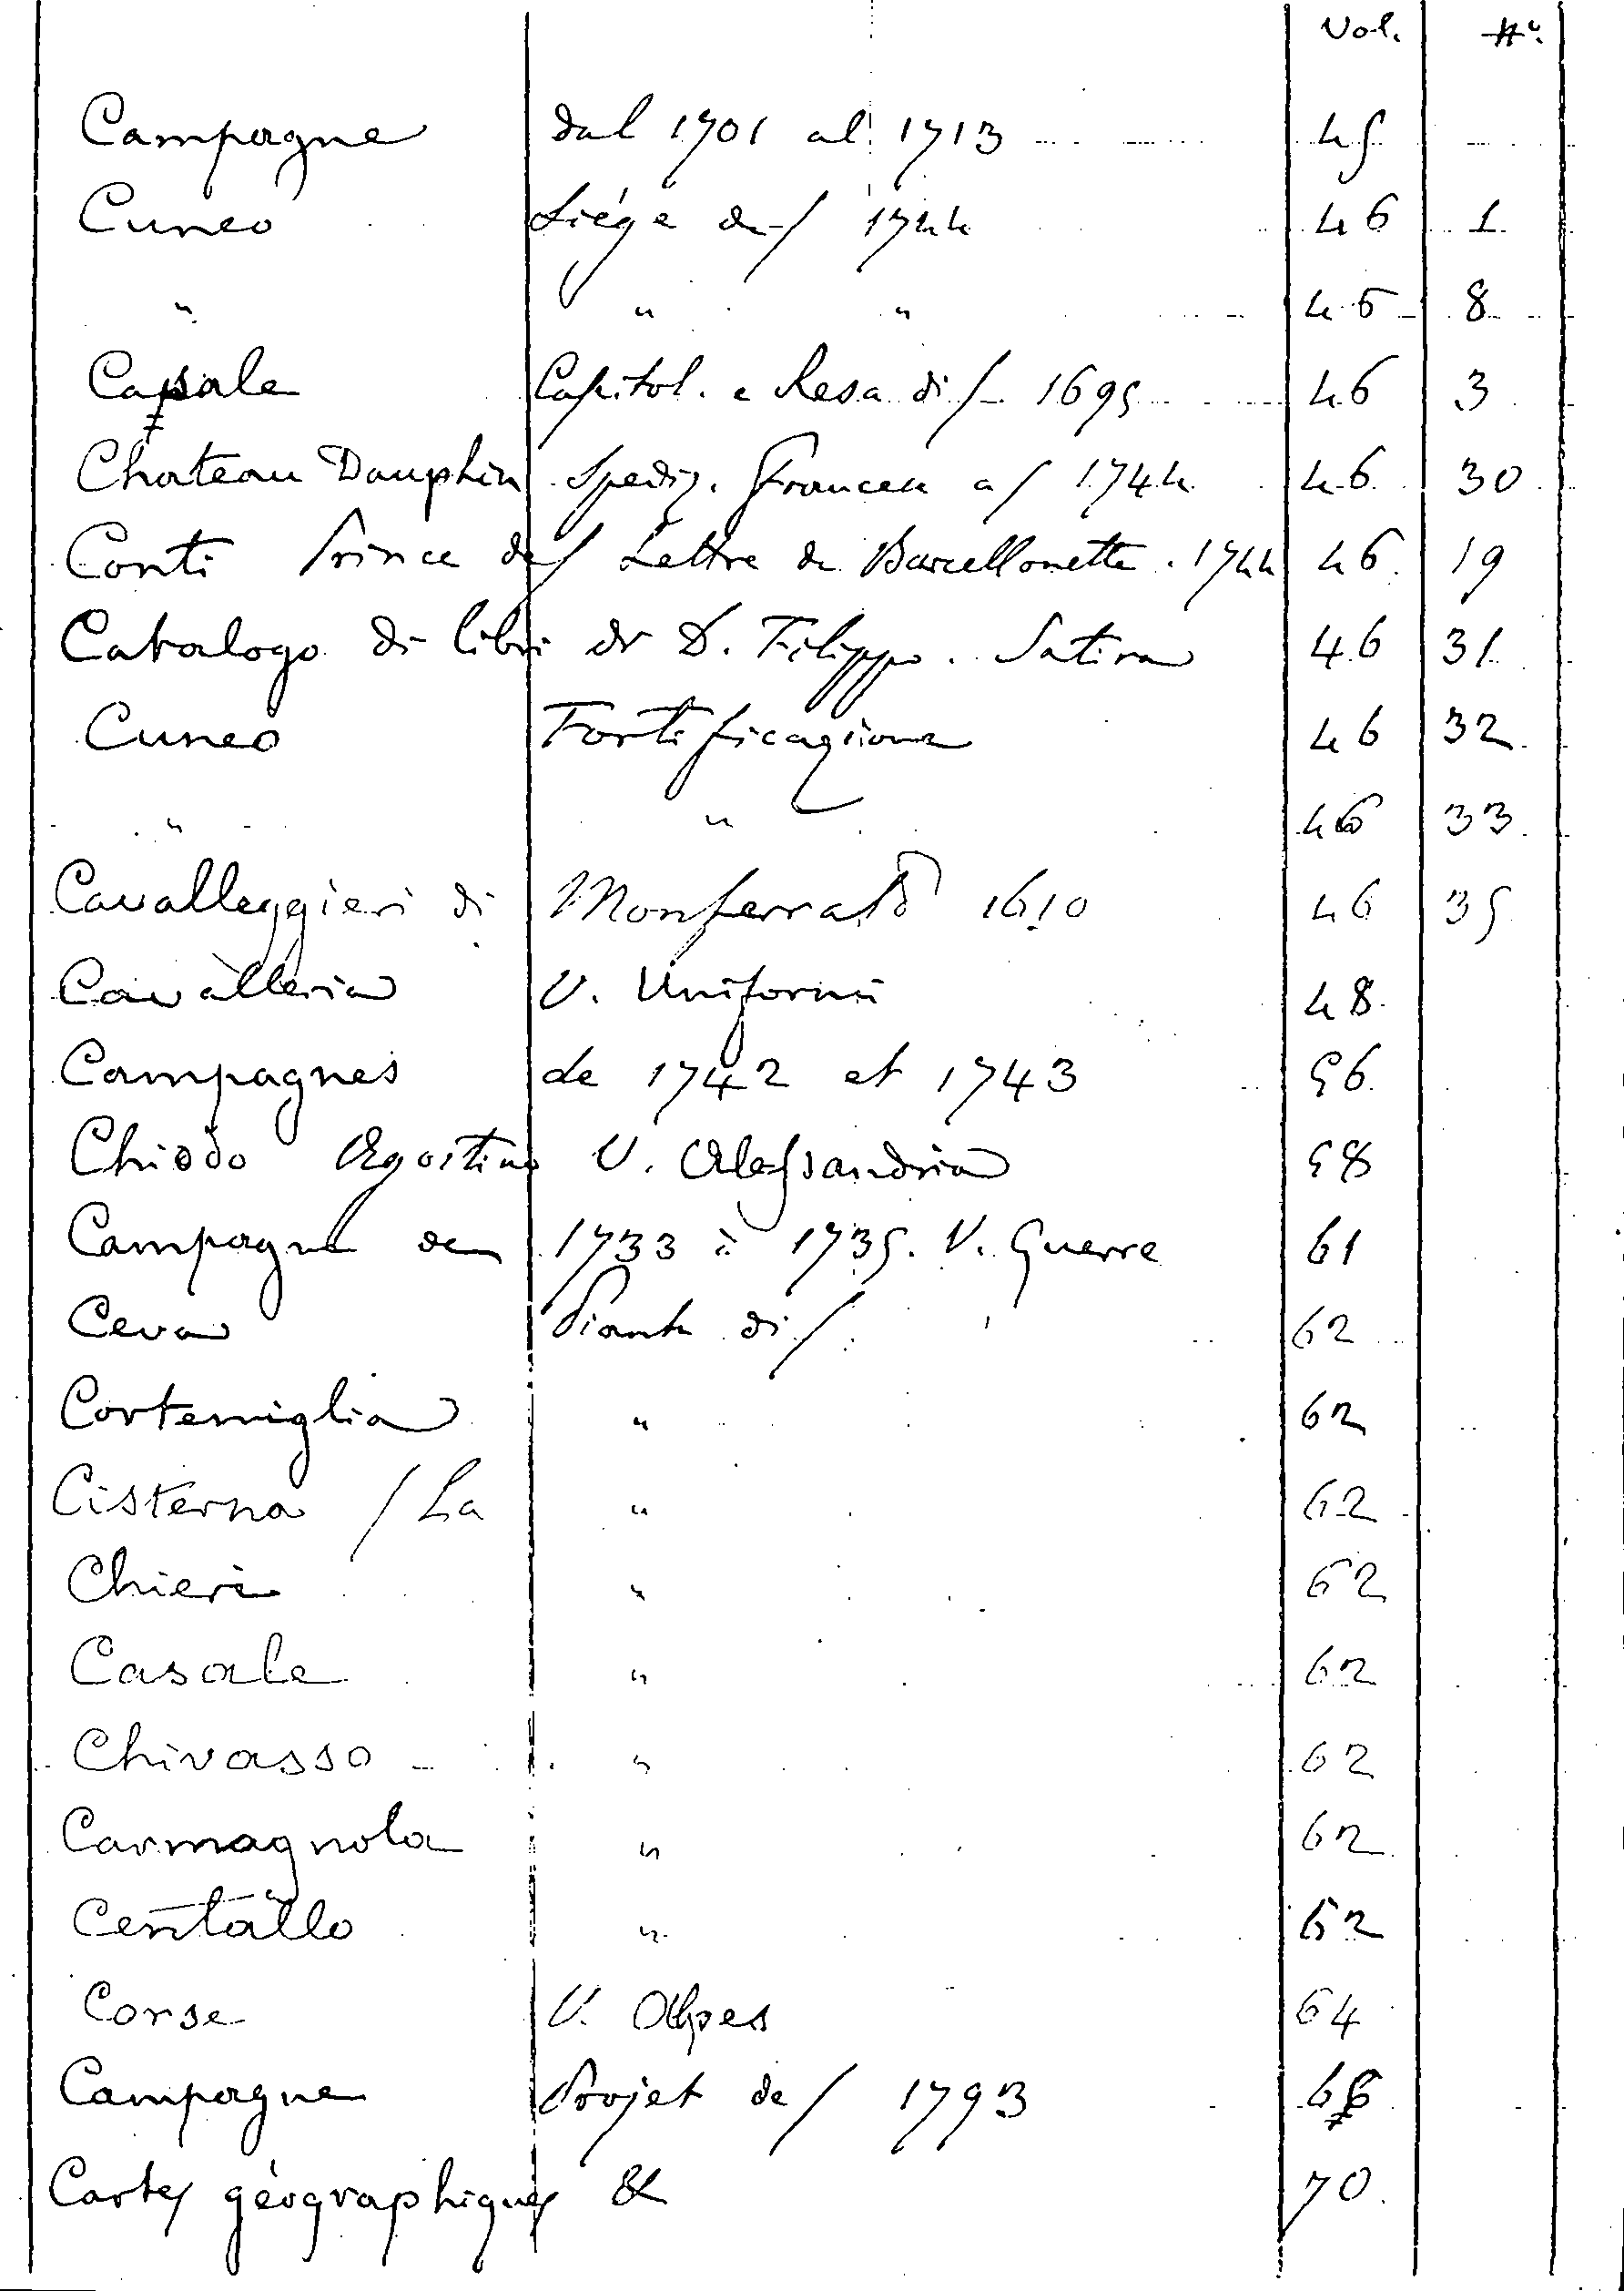 Vol. N°.
Campagne dal 1701 al 1713 45
Cuneo Siége de/ 1744 46 1
" " " 46 8
Casale Capitol. e Resa di/ 1695 46 3
Chateau Dauphin Spediz. Francese a/ 1744 46 30
Conti Prince de/ Lettre de Barcellonette. 1744 46 19
Catalogo di libri di D. Filippo. Satira 46 31
Cuneo Fortificazione 46 32
" " 46 33
Cavalleggieri di Monferrato 1610 46 35
Cavalleria V. Uniformi 48
Campagnes de 1742 et 1743 56
Chiodo Agostino V. Alessandria 58
Campagne de 1733 à 1735. V. Guerre 61
Ceva Piante di/ 62
Cortemiglia " 62
Cisterna /La " 62
Chieri " 62
Casale " 62
Chivasso " 62
Carmagnola " 62
Centallo " 62
Corse V. Alpes 64
Campagne Projet de/ 1793 66
Cartes géographiques & 70